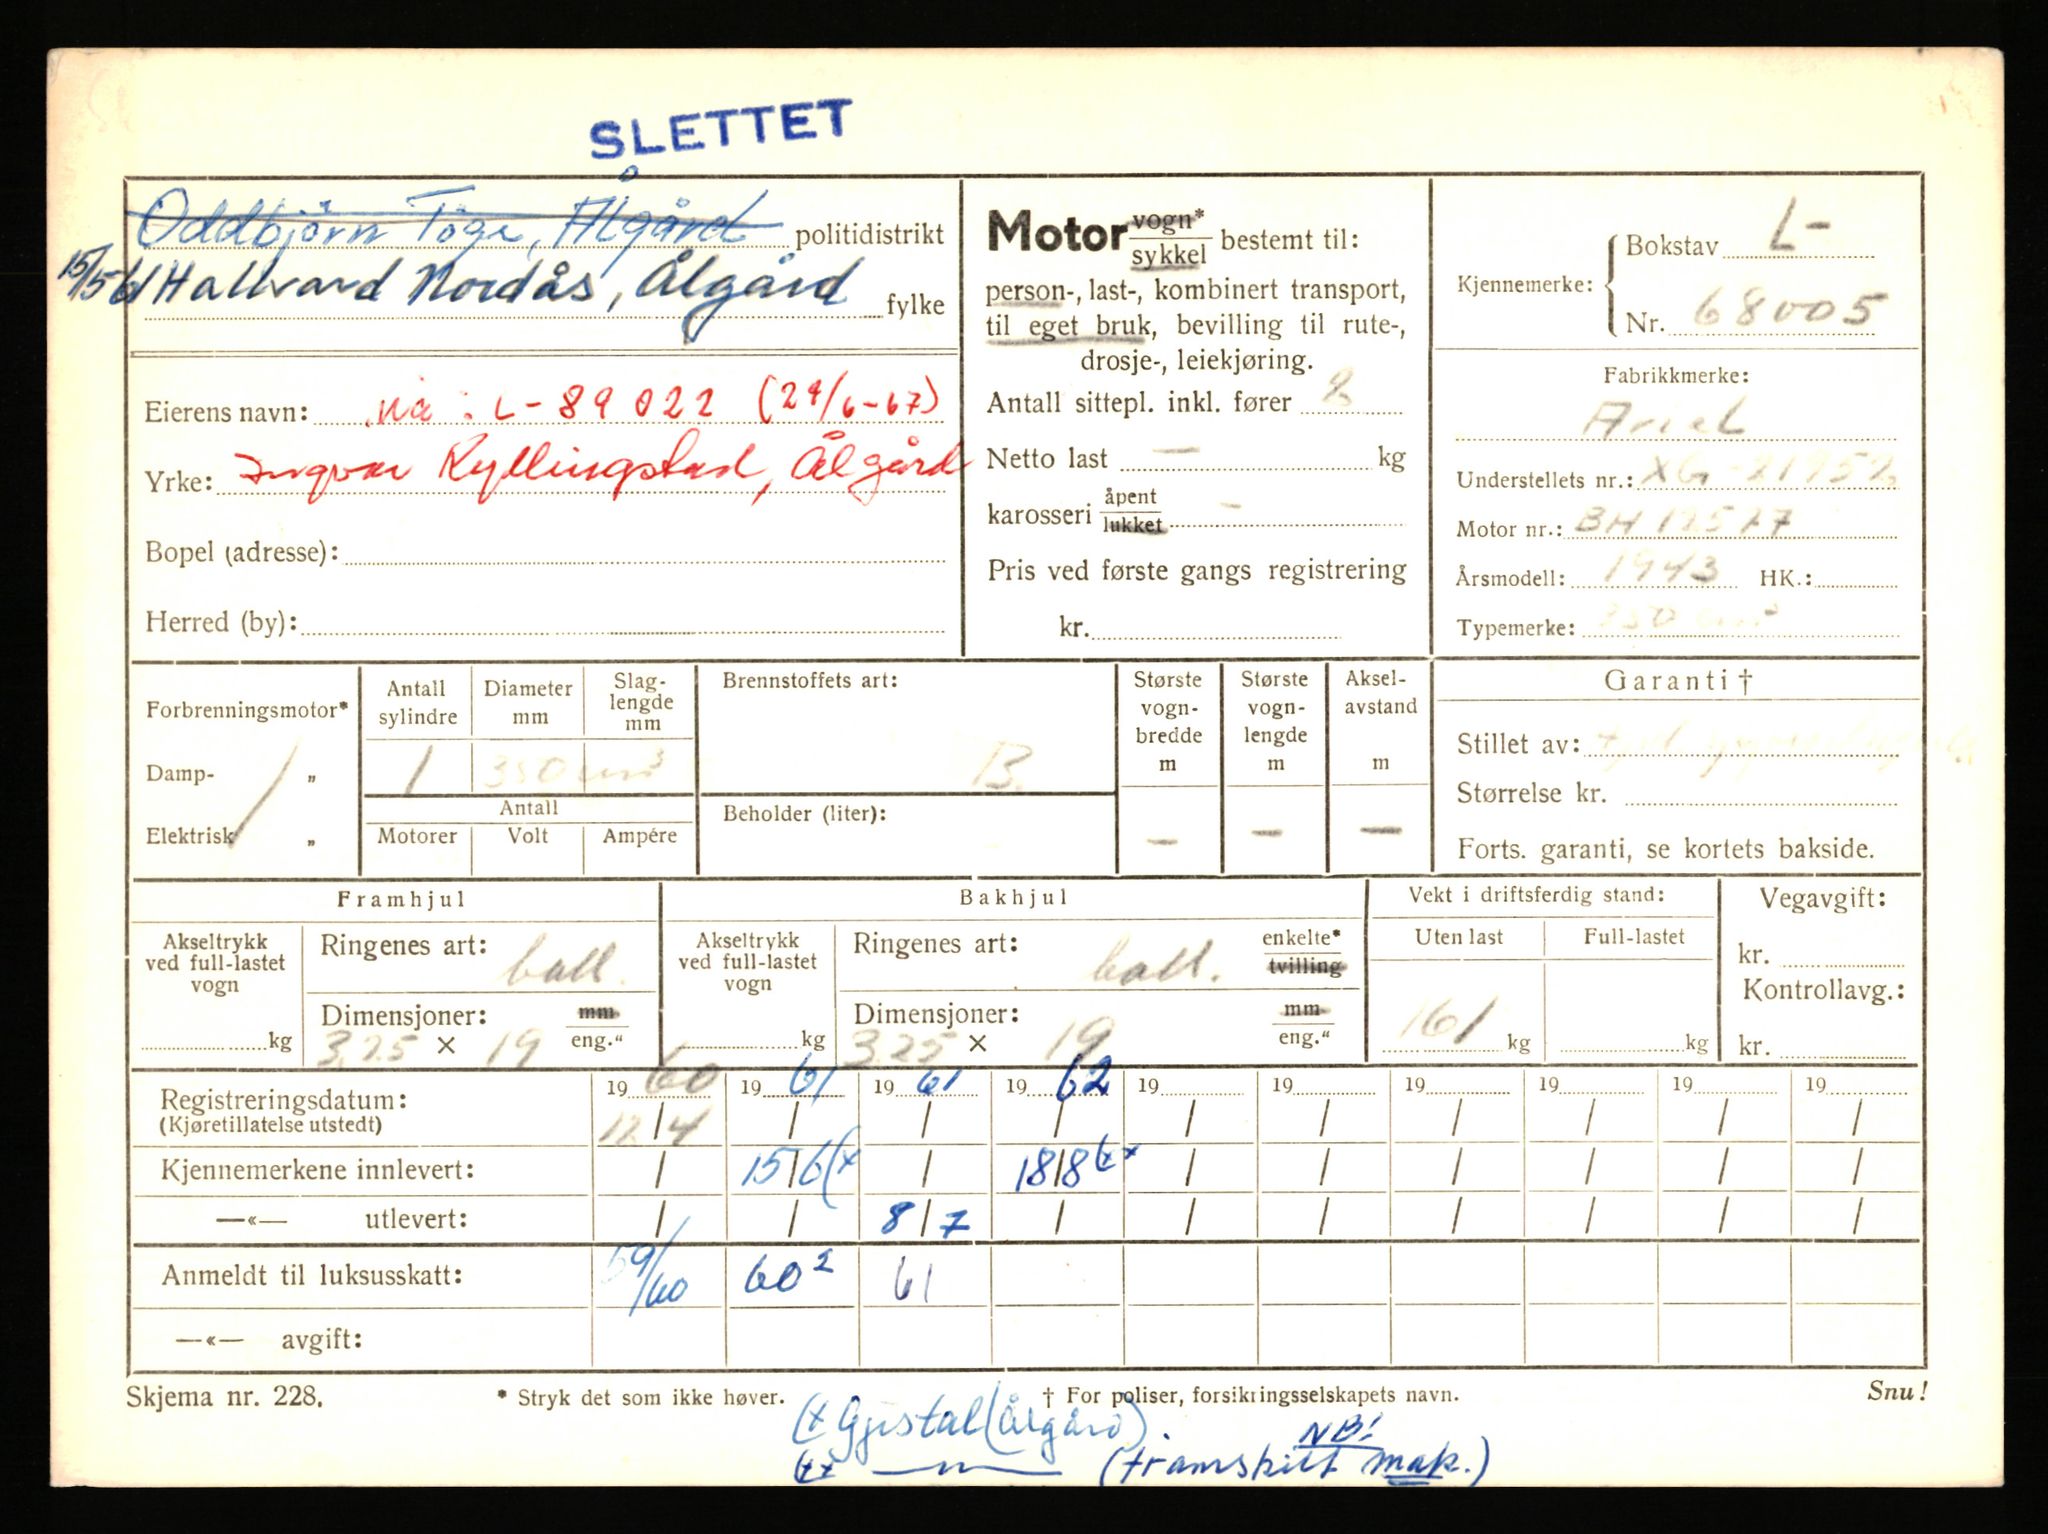 SLETTET
Oddbjörn Töge, Ålgård politidistrikt
15/5 61 Hallvard Nordås, Ålgård fylke
Eierens navn: Nå: L-89022 (29/6-67)
Yrke: Ingvar Kyllingstad, Ålgård
Bopel (adresse):
Herred (by):
Motor vogn*/sykkel bestemt til:
person-, last-, kombinert transport,
til eget bruk, bevilling til rute-,
drosje-, leiekjøring.
Antall sittepl. inkl. fører 2
Netto last — kg
karosseri åpent/lukket —
Pris ved første gangs registrering
kr.
Kjennemerke: Bokstav L-
Nr. 68005
Fabrikkmerke:
Ariel
Understellets nr.: XG-21952
Motor nr.: BH 12527
Årsmodell: 1943 HK.:
Typemerke: 350 cm³
Forbrenningsmotor*
Damp- „
Elektrisk „
Antall sylindre Diameter mm Slaglengde mm
1 350 cm³
Antall
Motorer Volt Ampére
Brennstoffets art:
B.
Beholder (liter):
Største vognbredde m
—
Største vognlengde m
—
Akselavstand m
—
Garanti †
Stillet av:
Størrelse kr.
Forts. garanti, se kortets bakside.
Framhjul
Akseltrykk ved full-lastet vogn
kg
Ringenes art: ball.
Dimensjoner: mm/eng."
3.25 × 19
Bakhjul
Akseltrykk ved full-lastet vogn
kg
Ringenes art: ball. enkelte*/tvilling
Dimensjoner: mm/eng."
3.25 × 19
Vekt i driftsferdig stand:
Uten last Full-lastet
161 kg kg
Vegavgift:
kr.
Kontrollavg.:
kr.
19 60 19 61 19 61 19 62 19 19 19 19 19 19
Registreringsdatum: 12/4 / / / / / / / / /
(Kjøretillatelse utstedt)
Kjennemerkene innlevert: / 15/6 (x / 18/8 (xx / / / / / /
—«— utlevert: / / 8/7 / / / / / / /
Anmeldt til luksusskatt: 59/60 60² 61
—«— avgift:
Skjema nr. 228. * Stryk det som ikke høver. † For poliser, forsikringsselskapets navn. Snu!
(x Gjestal (Ålgård).
(xx —"— (framskilt mak.) NB!